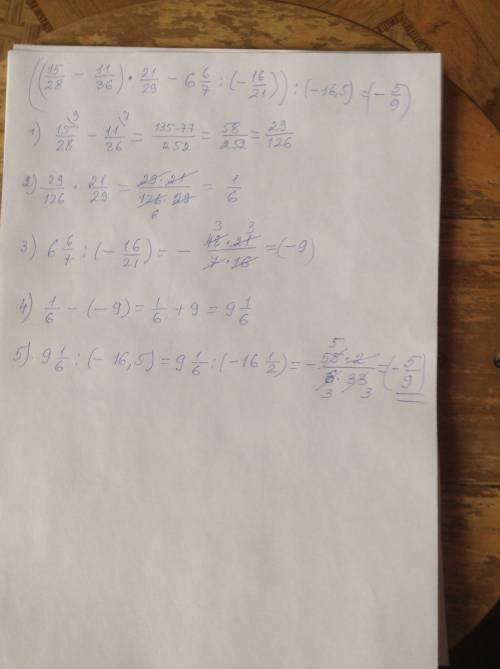 ((15/28 − 11/36) · 21/29 − 6 6/7 : (−16/21)) : (−16,5) = (−5/9)
1) 15/28 ⁹ − 11/36 ⁷ = 135−77/252 = 58/252 = 29/126
2) 29/126 · 21/29 = 29·21/126·29 6 = 1/6
3) 6 6/7 : (−16/21) = − 3 48·21 3/7·16 = (−9)
4) 1/6 − (−9) = 1/6 + 9 = 9 1/6
5) 9 1/6 : (−16,5) = 9 1/6 : (−16 1/2) = − 5 55·2/6·33 3 3 = (−5/9)